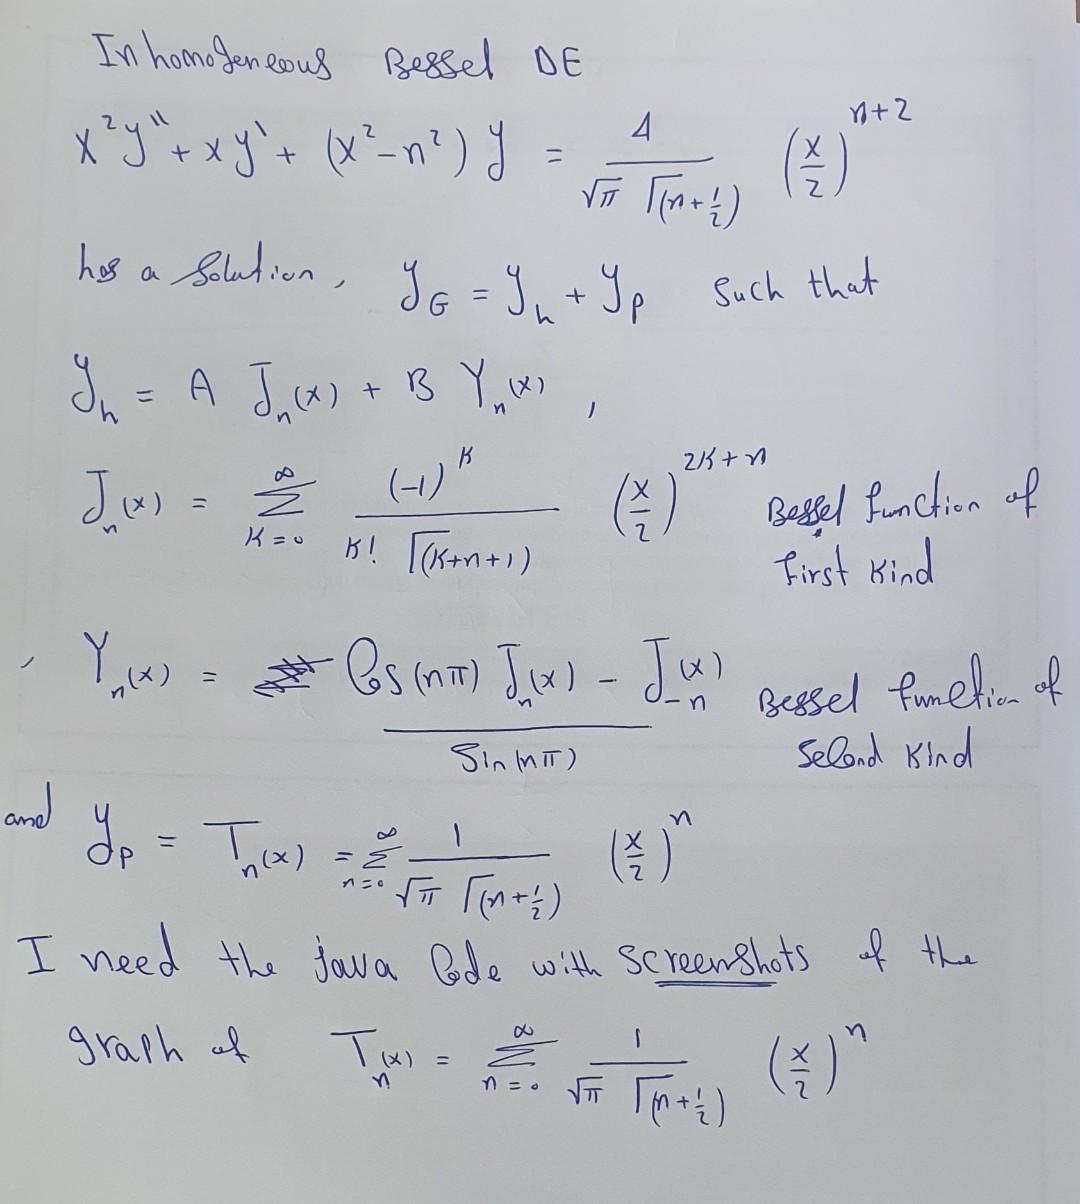 Inhomogeneous Bessel DE
x²y'' + xy' + (x²-n²) y = 4 / (√π Γ(n+½)) (x/2)^(n+2)
has a solution, y_G = y_h + y_p such that
y_h = A J_n(x) + B Y_n(x) ,
J_n(x) = Σ_(K=0)^∞ (-1)^K / (K! Γ(K+n+1)) (x/2)^(2K+n) Bessel function of
first kind
, Y_n(x) = (Cos(nπ) J_n(x) - J_-n(x)) / Sin(nπ) Bessel function of
Second Kind
and y_p = T_n(x) = Σ_(n=0)^∞ 1 / (√π Γ(n+½)) (x/2)^n
I need the java Code with screenshots of the
graph of T_n(x) = Σ_(n=0)^∞ 1 / (√π Γ(n+½)) (x/2)^n